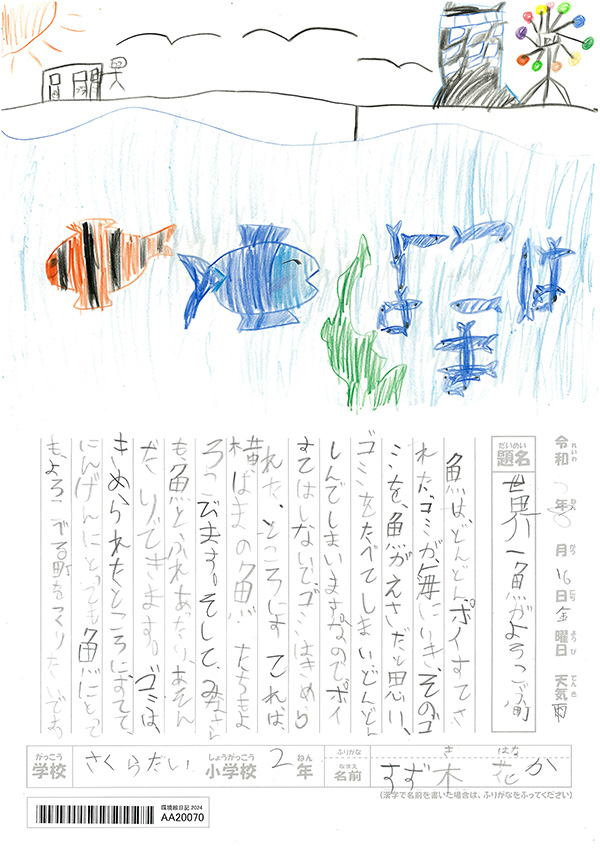 よこはま
令和 年8月16日金曜日 天気雨
れいわ ねん がつ にち ようび てんき
だいめい
題名
世界一魚がよろこぶ町
魚はどんどんポイすてさ
れたゴミが、海にいき、そのゴ
ミを、魚がえさだと思い、
ゴミをたべてしまい、どんどん
しんでしまいます。なので、ポイ
すてはしないで、ゴミはきめら
れた、ところにすてれば、
横はまの魚たちもよ
ろこびます。そして、みなさん
も、魚とふれあったり、あそん
だりできます。ゴミは、
きめられたところにすてて、
にんげんにとっても魚にとって
も、よろこべる町をつくりたいです。
がっこう しょうがっこう ねん ふりがな き はな
学校 さくらだい 小学校 2年
なまえ
名前 すず木 花か
(漢字で名前を書いた場合は、ふりがなをふってください)
環境絵日記2024
AA20070